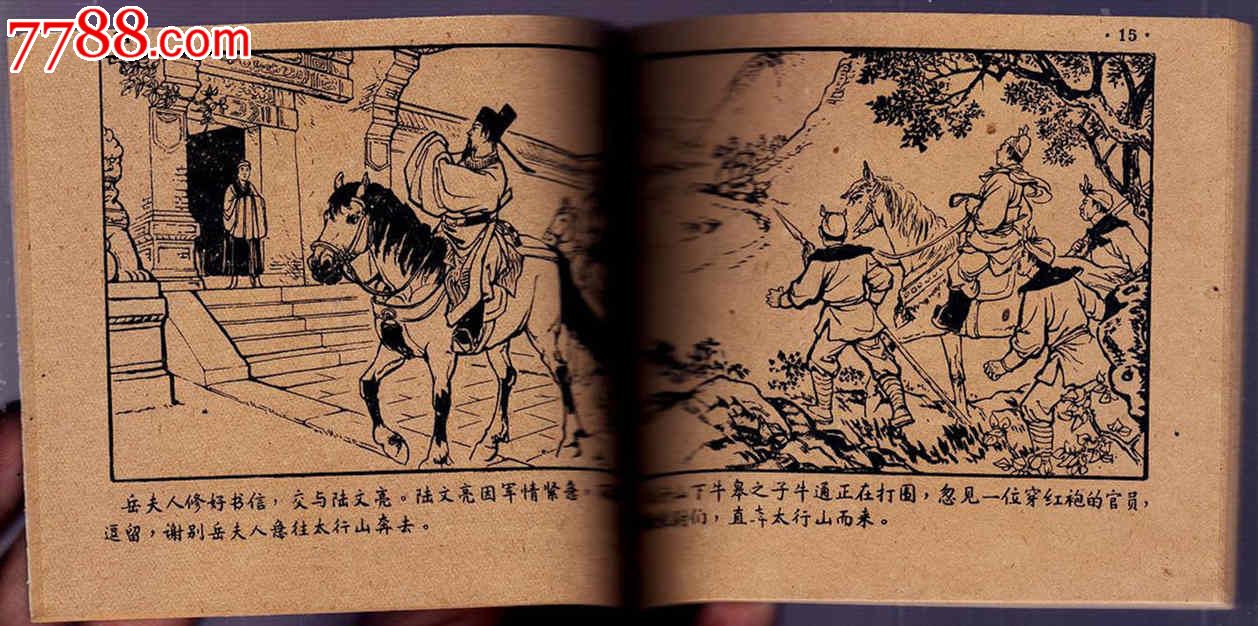 7788.com
岳夫人修好书信，交与陆文亮。陆文亮因军情紧急，
逗留，谢别岳夫人急往太行山奔去。
·15·
山下牛皋之子牛通正在打围，忽见一位穿红袍的官员，
们，直奔太行山而来。